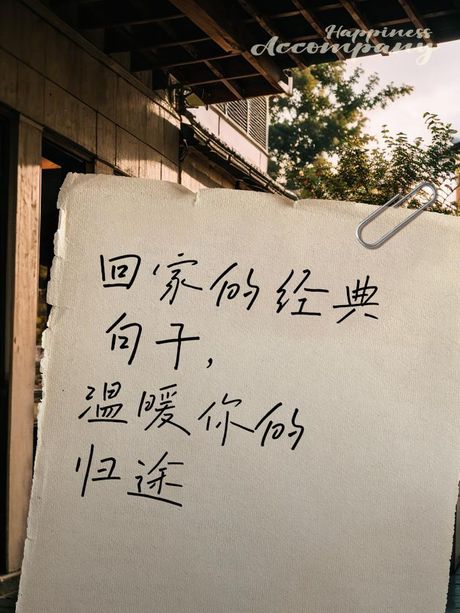 Happiness
Accompany
回家的经典
句子,
温暖你的
归途